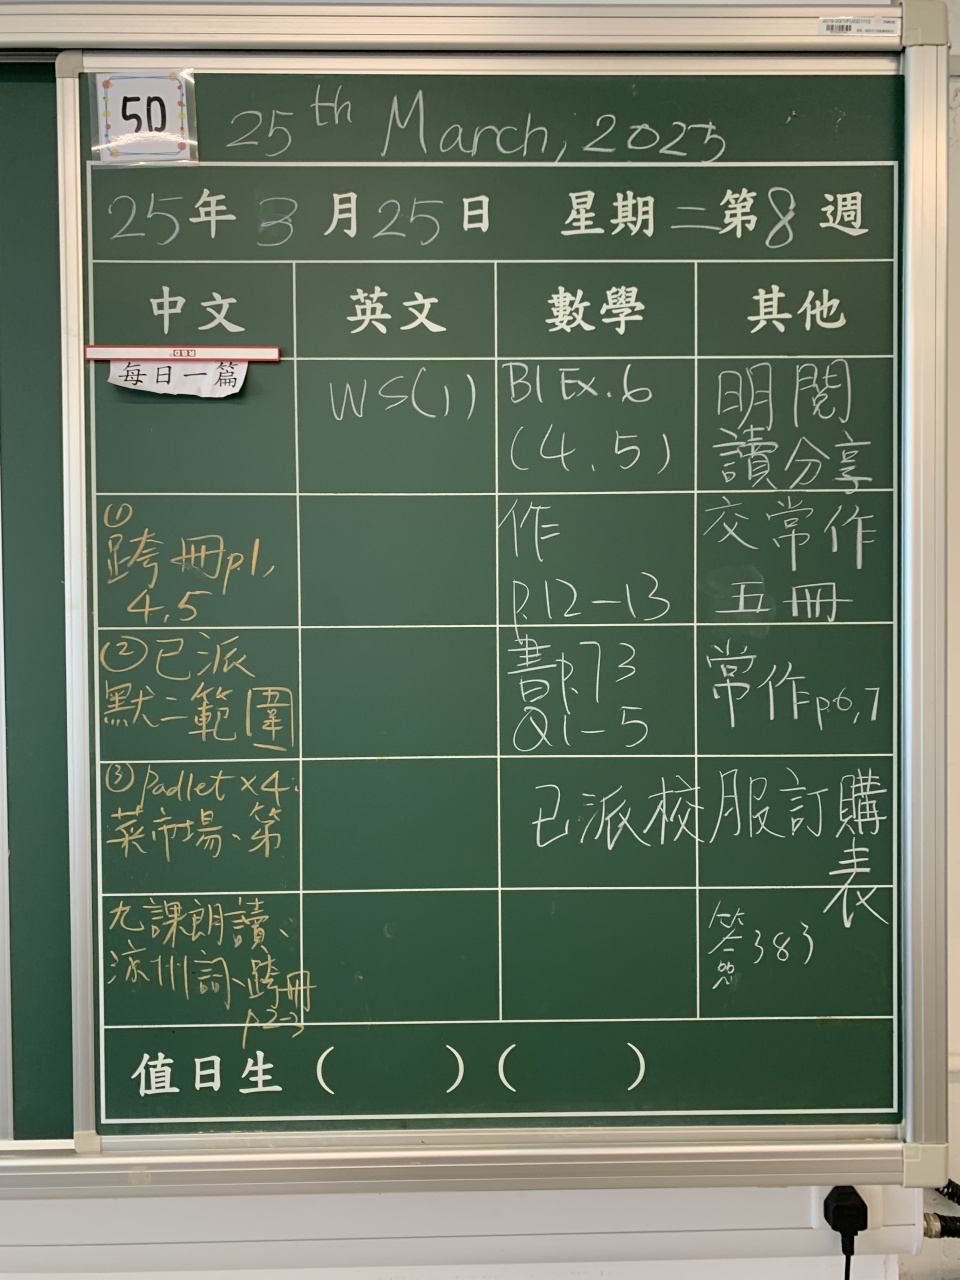 5D
25th March, 2025
25年3月25日 星期二第8週
中文 英文 數學 其他
每日一篇
①
跨冊p.1,
4,5
②已派
默二範圍
③Padlet×4:
菜市場、第
九課朗讀、
涼州詞、跨冊
p2-3
WS(1)
B1Ex.6
(4,5)
作
P.12-13
書p.73
Q1-5
明閱
讀分享
交常作
五冊
常作p.6,7
已派校服訂購
表
簽383
值日生 ( ) ( )